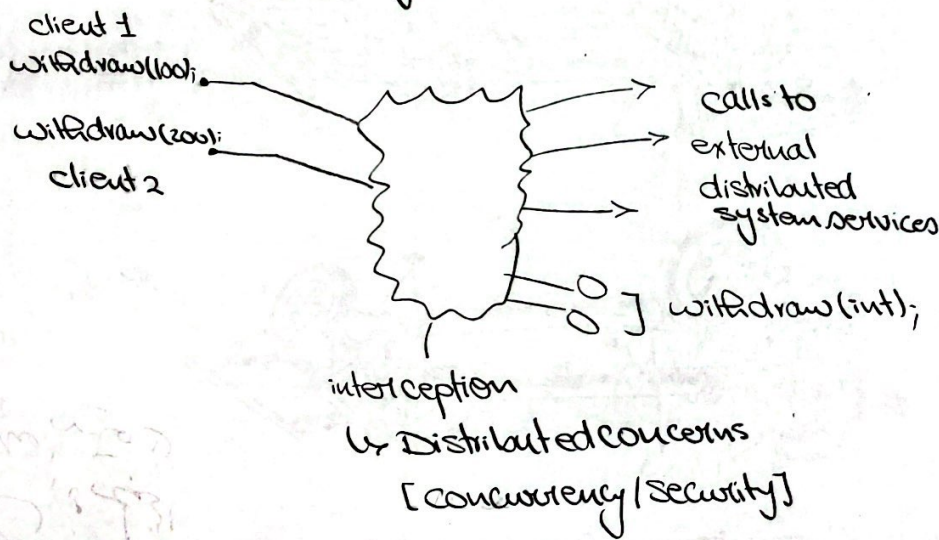 client 1
withdraw(100);
withdraw(200);
client 2
calls to
external
distributed
system services
withdraw(int);
interception
↳ Distributed concerns
[concurrency/security]